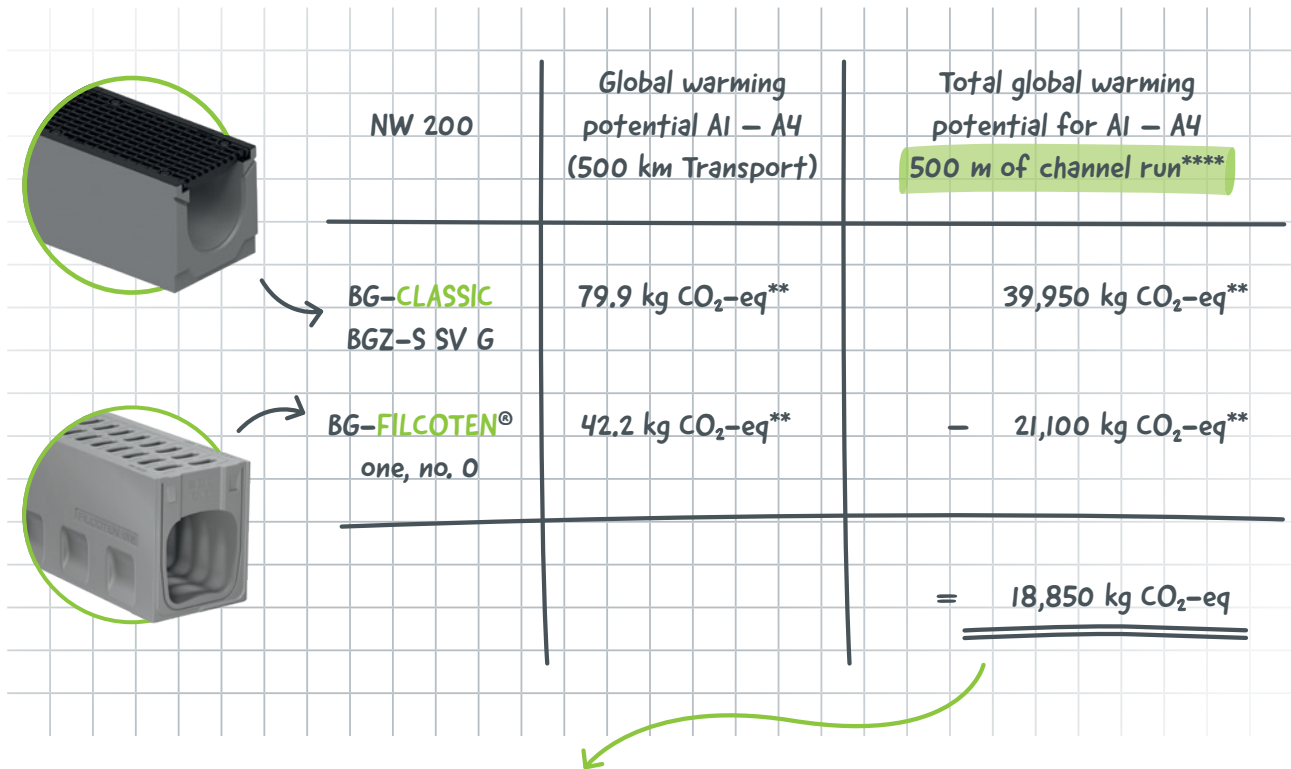 NW 200
Global warming
potential A1 – A4
(500 km Transport)
Total global warming
potential for A1 – A4
500 m of channel run****
BG-CLASSIC
BGZ-S SV G
79.9 kg CO₂-eq**
39,950 kg CO₂-eq**
BG-FILCOTEN®
one, no. 0
42.2 kg CO₂-eq**
– 21,100 kg CO₂-eq**
= 18,850 kg CO₂-eq